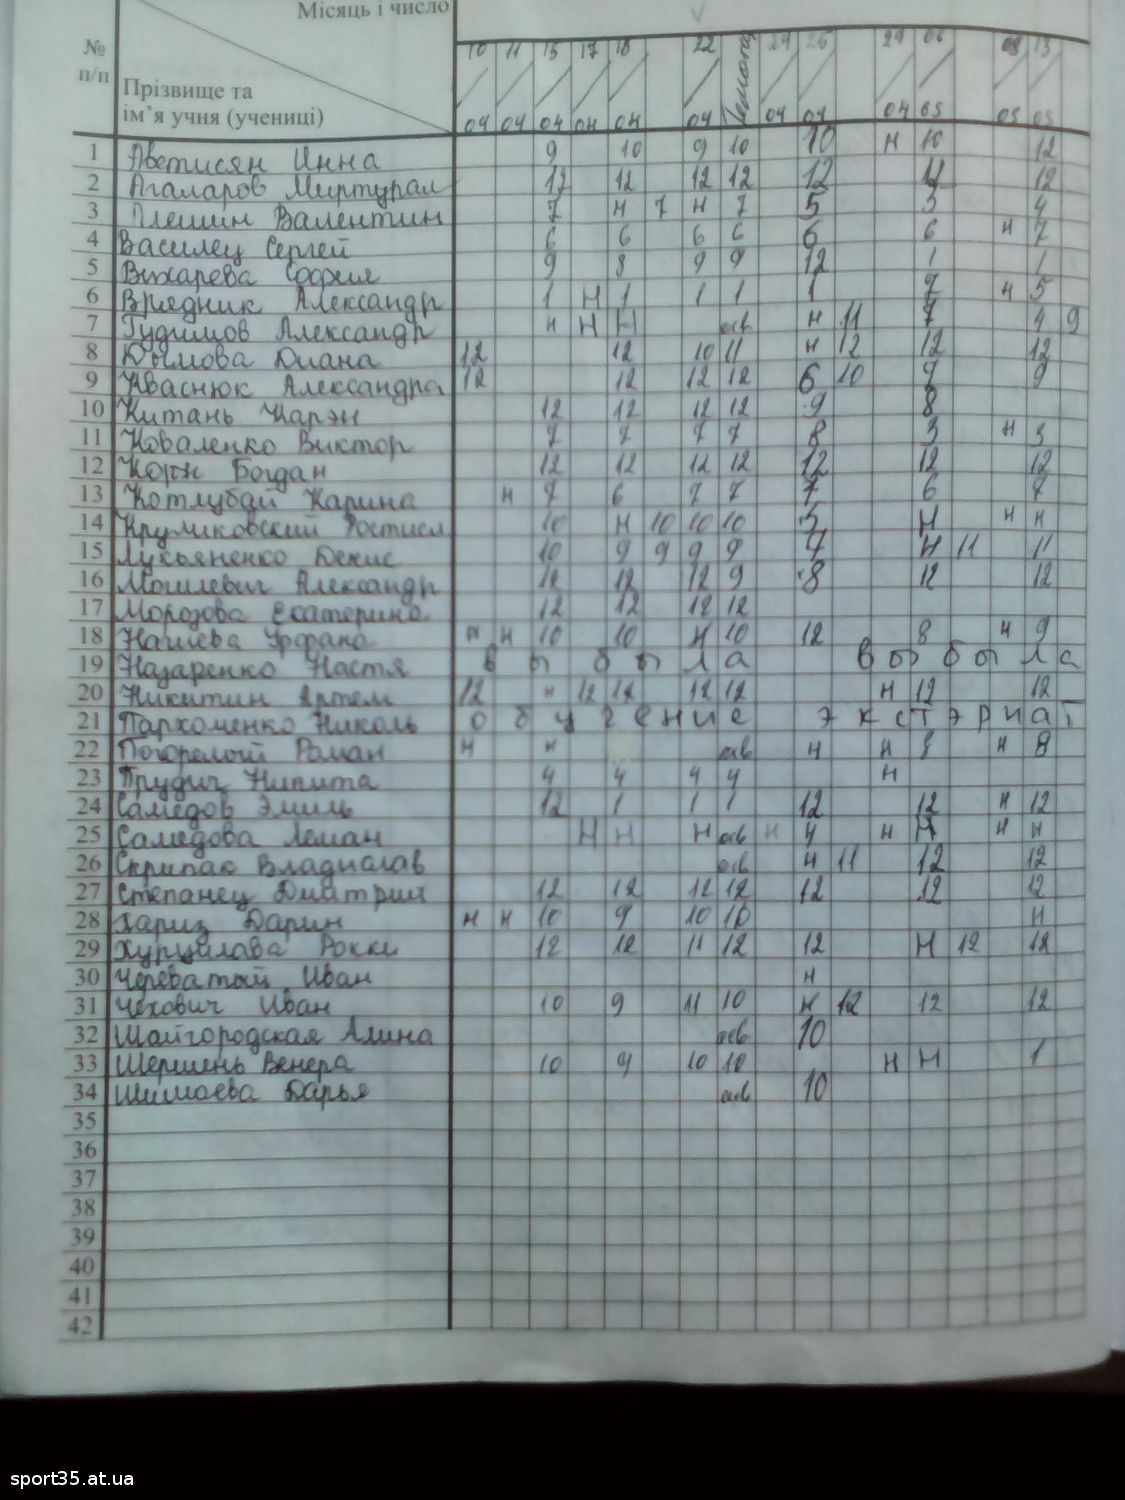 Місяць і число
№ п/п
Прізвище та ім’я учня (учениці)
10 11 15 17 18 22 24 29 06 08 13
04 04 04 04 04 04 04 04 04 05 05 05
1 Аветисян Инна 9 10 9 10 10 н 10 12
2 Агаларов 12 12 12 12 12 12 12
3 Валентин 7 н 7 н 7 5 3 4
4 Василец Сергей 6 6 6 6 6 6 н 7
5 Вихарева София 9 8 9 9 12 1 1
6 Александр 1 н 1 1 1 1 н 5
7 Гудимов Александр н н н осв н 11 7 4 9
8 Диана 12 12 10 11 н 12 12 12
9 Кваснюк Александра 12 12 12 12 6 10 9 9
10 Китань Карэн 12 12 12 12 9 8
11 Коваленко Виктор 7 7 7 7 8 3 н 3
12 Богдан 12 12 12 12 12 12 12
13 Котлубай Карина н 7 6 7 7 7 6 7
14 Круликовский 10 н 10 10 10 н н н
15 Лукьяненко Денис 10 9 9 9 9 н 11 11
16 Александр 12 12 12 9 8 12 12
17 Морозова Екатерина 12 12 12 12
18 н н 10 10 н 10 12 8 н 9
19 Назаренко Настя выбыла выбыла
20 Никитин Артем 12 н 12 12 12 12 н 12 12
21 Пархоменко Николь обучение экстэрнат
22 Погорелый Роман н н осв н н 8 н 8
23 Никита 4 4 4 4 н
24 Самедов Эмиль 12 1 1 1 12 12 н 12
25 Самедова Леман н н н осв н н н н н
26 Скрипак Владислав осв н 11 12 12
27 Степанец Дмитрий 12 12 12 12 12 12 12
28 Хариз Дарин н н 10 9 10 10 н
29 Рокки 12 12 11 12 12 н 12 12
30 Череватый Иван н
31 Чехович Иван 10 9 11 10 н 12 12 12
32 Шайгородская Алина осв 10
33 Шершень Венера 10 9 10 10 н н 1
34 Дарья осв 10
35
36
37
38
39
40
41
42
sport35.at.ua